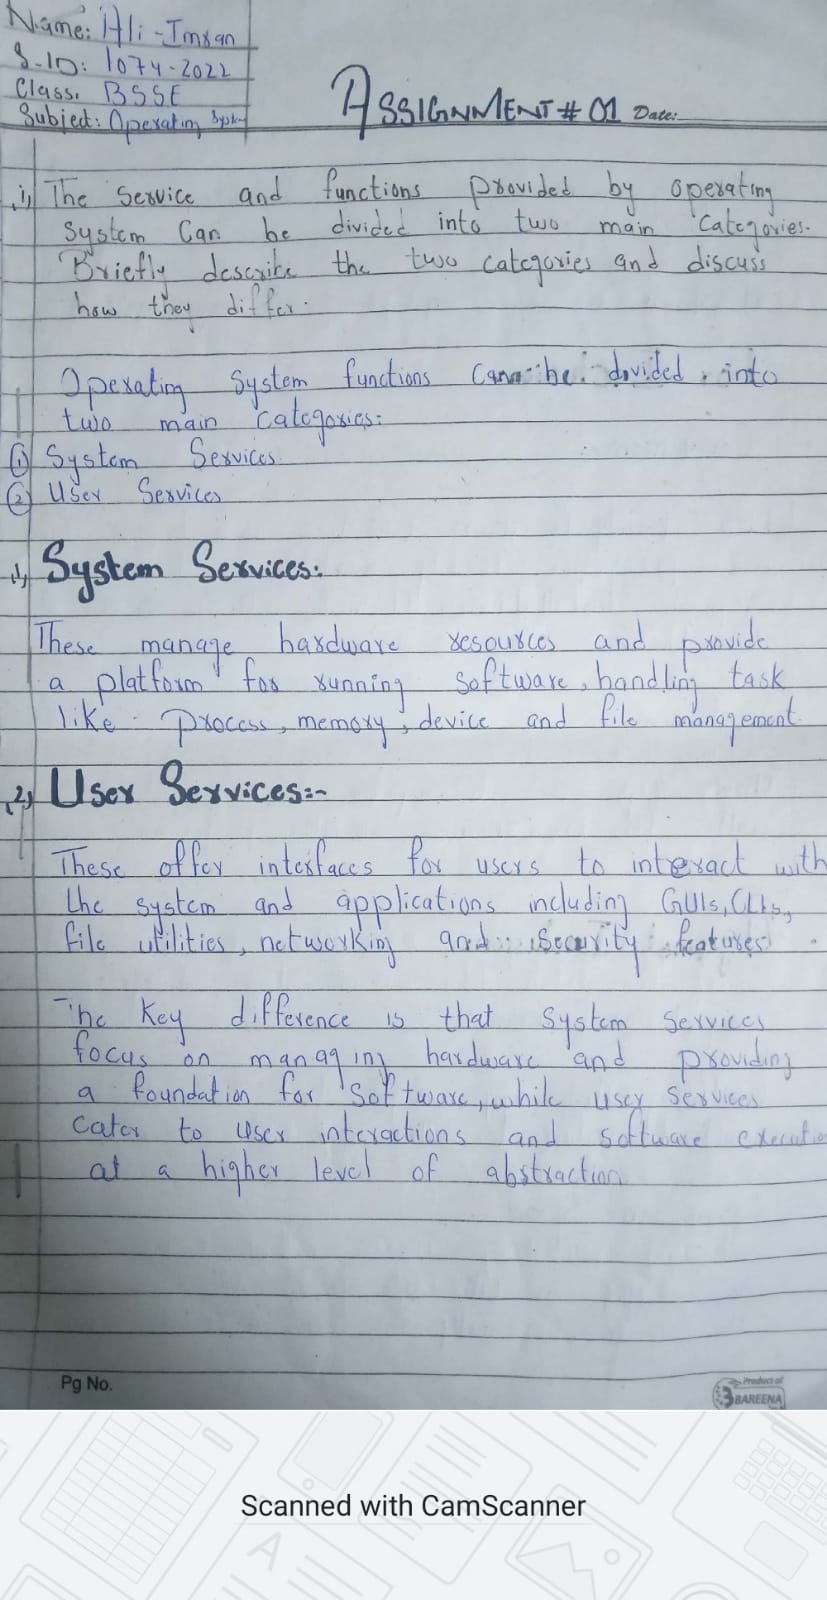 Name: Ali-Imran
S-ID: 1074-2022
Class. BSSE
Subject: Operating System
ASSIGNMENT # 01 Date:
i) The Service and functions provided by operating
system Can be divided into two main Categories.
Briefly describe the two categories and discuss
how they differ.
Operating System functions Can be divided into
two main categories:
① System Services
② User Services
1) System Services:
These manage hardware resources and provide
a platform for running software, handling task
like process, memory, device and file management
2) User Services:-
These offer interfaces for users to interact with
the system and applications including GUIs, CLIs,
file utilities, networking and security features
The Key difference is that System Services
focus on managing hardware and providing
a foundation for software, while user services
cater to user interactions and software executio
at a higher level of abstraction
Pg No.
Product of
BAREENA
Scanned with CamScanner